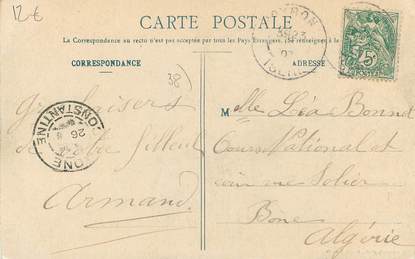 12€
CARTE POSTALE
La Correspondance au recto n'est pas acceptée par tous les Pays Étrangers. (Se renseigner à la
CORRESPONDANCE
ADRESSE
38
Gros baisers
de votre filleul
Armand
Mlle Léa Bonnet
Cours National et
coin rue
Bône
Algérie
BONE
CONSTANTINE
26
ISÈRE
5c